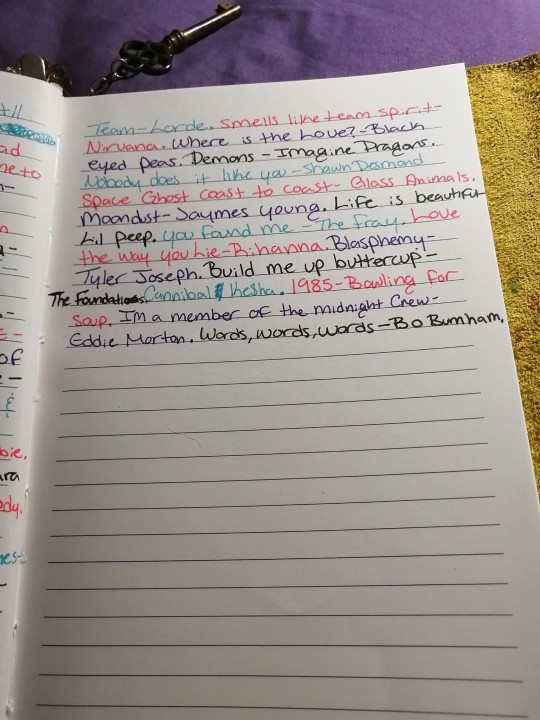 tll
ad
ne to
n-
n
a-
E-
of
e-
&
bie,
ara
edy.
nes-
Team-Lorde. Smells like team spirit-
Nirvana. Where is the Love?-Black
eyed Peas. Demons - Imagine Dragons.
Nobody does it like you -Shawn Desmond
Space Ghost Coast to Coast- Glass Animals.
Moondust-Jaymes young. Life is beautiful-
Lil peep. you found me -The fray. Love
the way you Lie-Rihanna. Blasphemy-
Tyler Joseph. Build me up buttercup-
The Foundations. Cannibal Kesha. 1985-Bowling for
Soup. I'm a member of the midnight Crew-
Eddie Morton. Words, words, words-Bo Burnham.